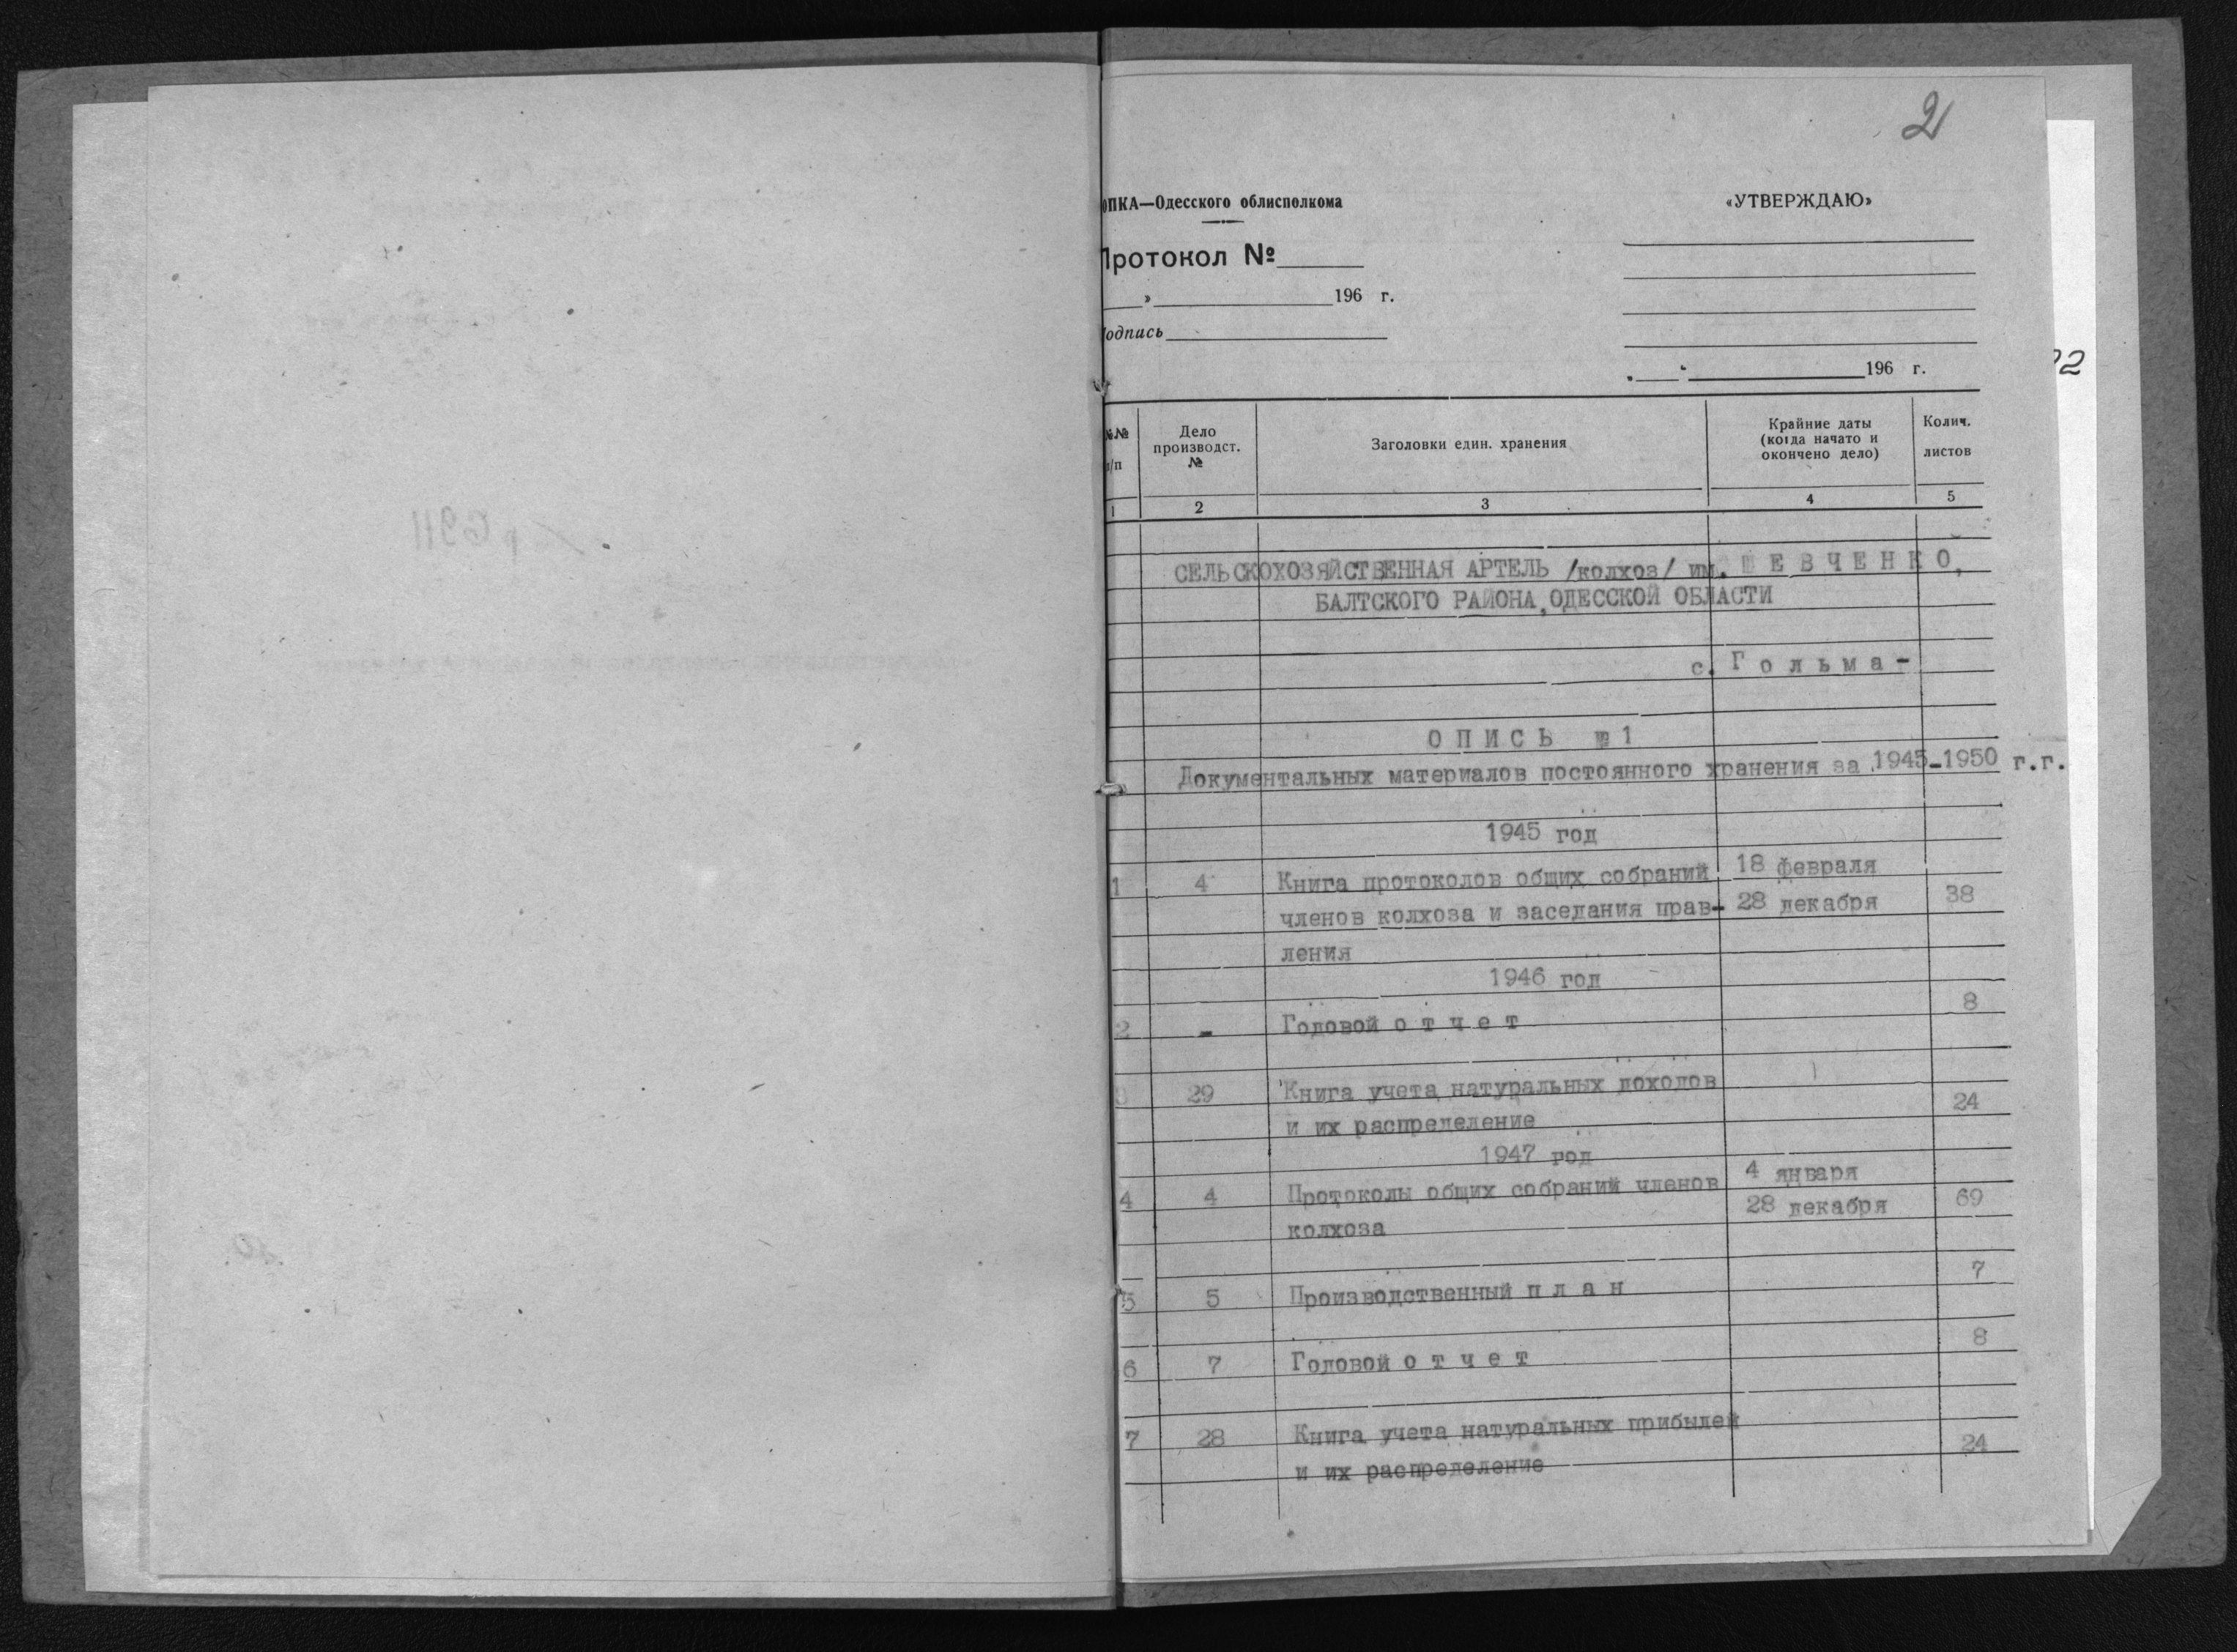 2
ОПКА—Одесского облисполкома
«УТВЕРЖДАЮ»
Протокол №
» 196 г.
Подпись
" 196 г.
№№ п/п
Дело производст. №
Заголовки един. хранения
Крайние даты (когда начато и окончено дело)
Колич. листов
1 2 3 4 5
СЕЛЬСКОХОЗЯЙСТВЕННАЯ АРТЕЛЬ /колхоз/ им. ШЕВЧЕНКО,
БАЛТСКОГО РАЙОНА, ОДЕССКОЙ ОБЛАСТИ
с. Гольма-
ОПИСЬ №1
Документальных материалов постоянного хранения за 1945-1950 г.г.
1945 год
1 4 Книга протоколов общих собраний 18 февраля
членов колхоза и заседания прав- 28 декабря 38
ления
1946 год
2 - Годовой отчет 8
3 29 Книга учета натуральных доходов
и их распределение 24
1947 год
4 4 Протоколы общих собраний членов 4 января
колхоза 28 декабря 69
5 5 Производственный план 7
6 7 Годовой отчет 8
7 28 Книга учета натуральных прибылей
и их распределение 24